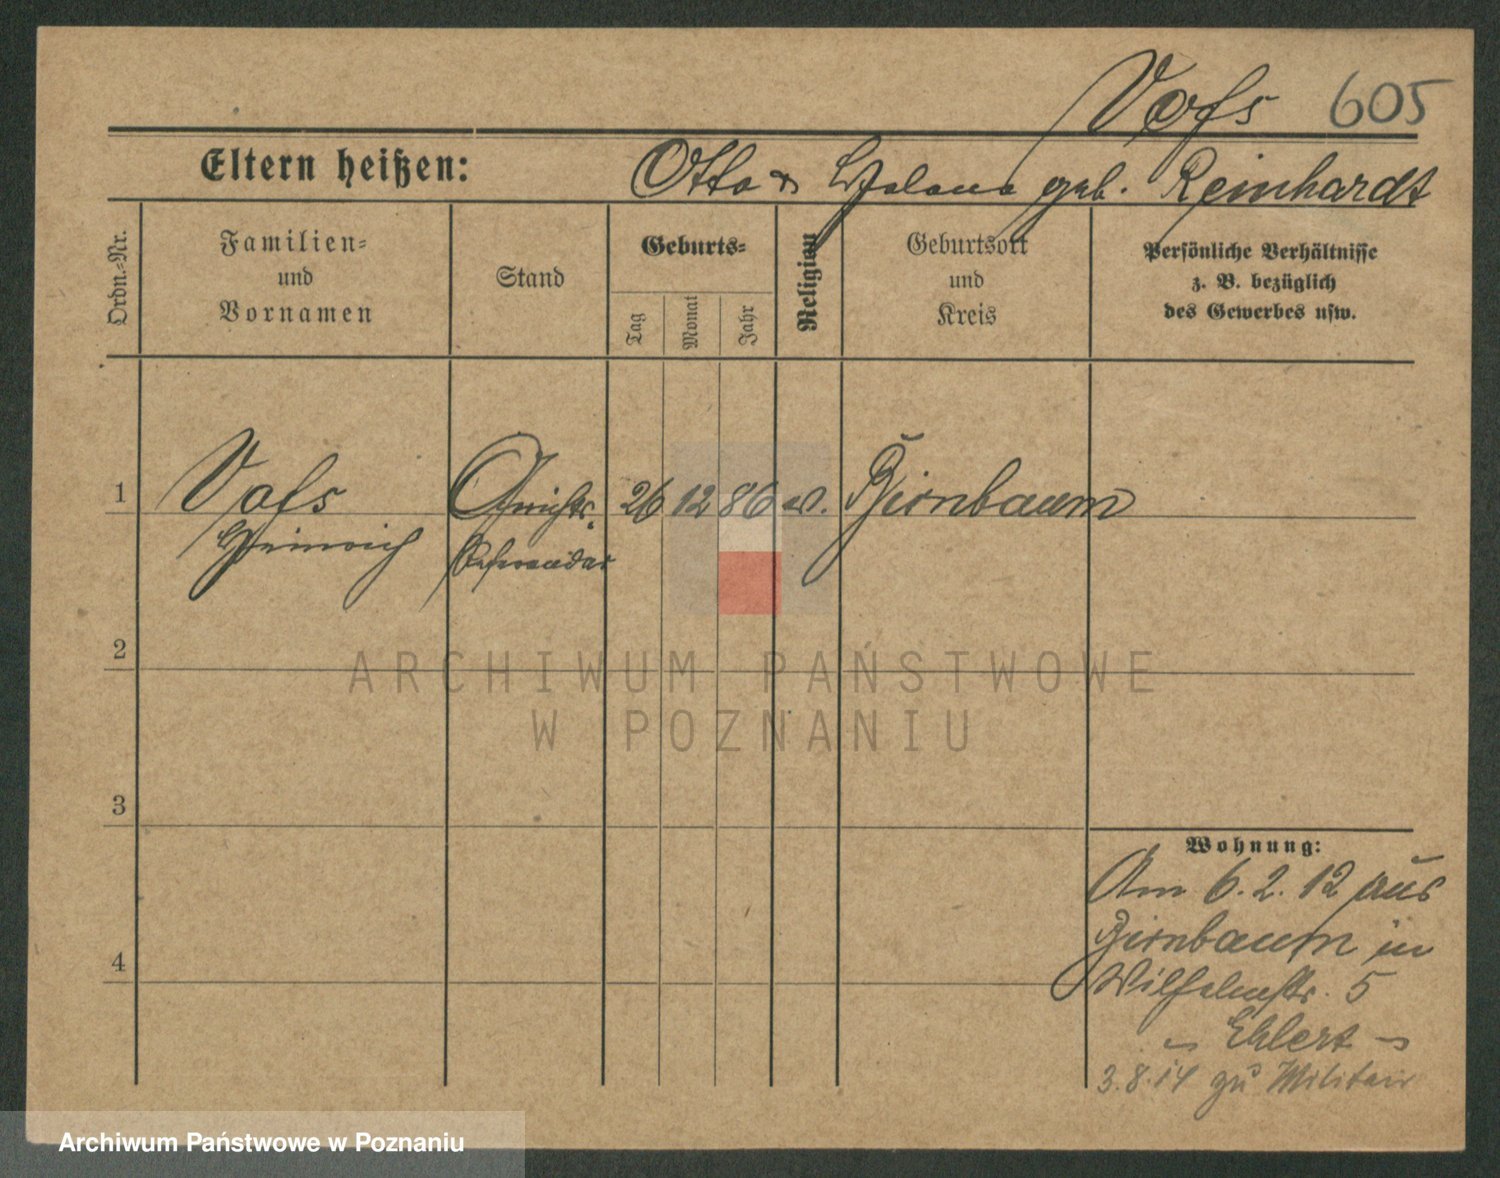 Voß 605
Eltern heißen: Otto & Helene geb. Reinhardt
Ordn.=Nr.
Familien=
und
Vornamen
Stand
Geburts=
Tag
Monat
Jahr
Religion
Geburtsort
und
Kreis
Persönliche Verhältnisse
z. B. bezüglich
des Gewerbes usw.
1 Voß Gerichts. 26 12 86 ev. Birnbaum
Heinrich Referendar
2
ARCHIWUM PAŃSTWOWE
W POZNANIU
3
Wohnung:
Am 6.2.12 aus
Birnbaum in
4
Wilhelmstr. 5
Ehlert
3.8.14 zu Militair
Archiwum Państwowe w Poznaniu